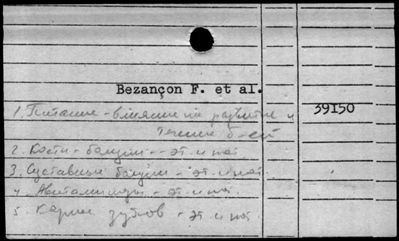 Bezançon F. et al.
1. Питание - влияние на развитие и 39150
течение б-ей
2. Кости - болезни - эт. и пат.
3. Суставные болезни - эт. и пат.
4. Авитаминозы - эт. и пат.
5. Кариес зубов - эт. и пат.